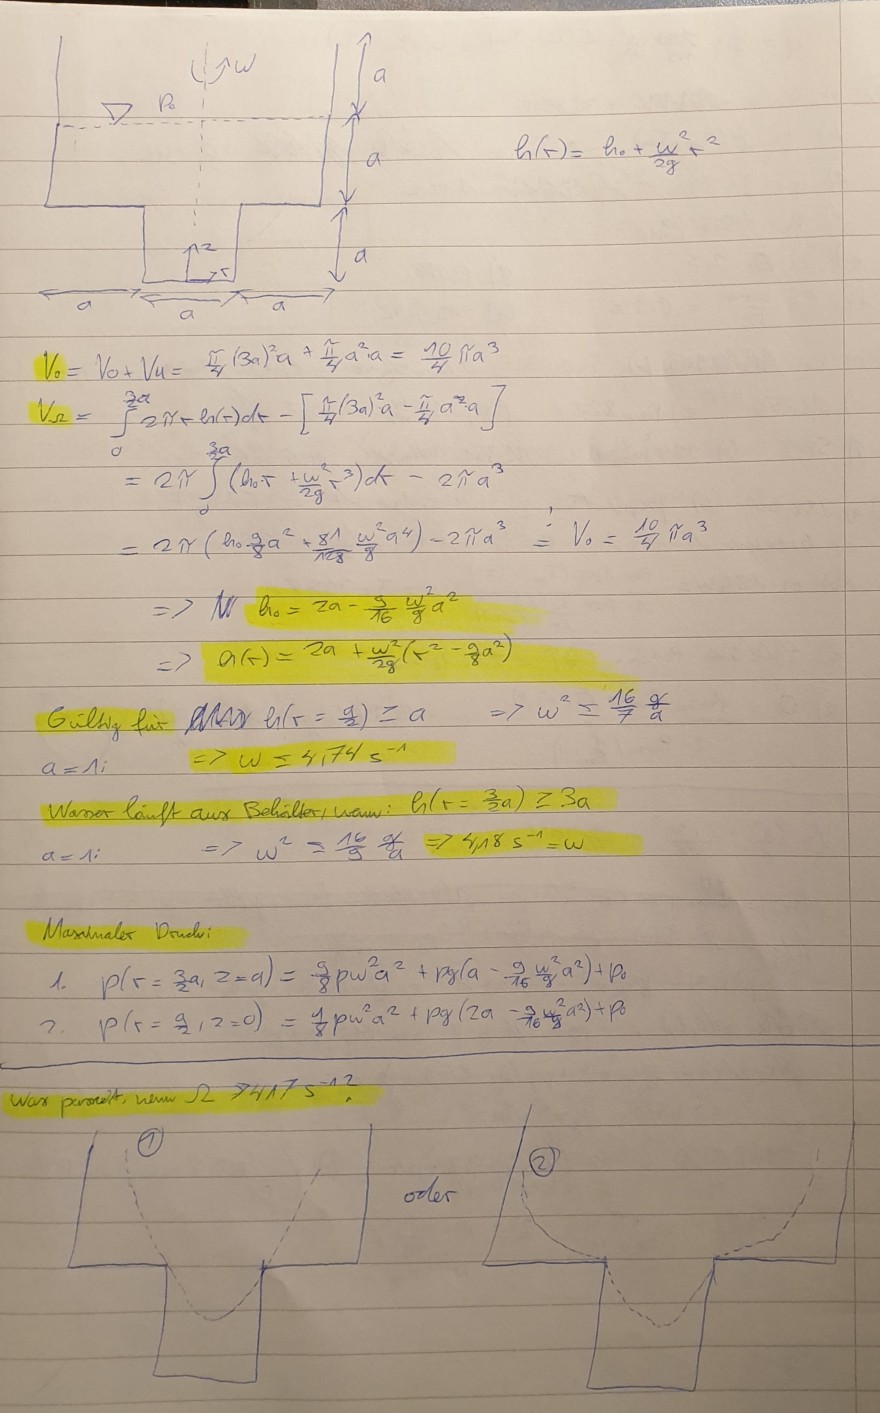 ω
a
p₀
h(r) = h₀ + ω²/2g r²
a
z
r
a
a
a
a
V₀ = Vo + Vu = π/4 (3a)² a + π/4 a² a = 10/4 πa³
V_Ω = ∫₀^(3/2 a) 2πr h(r) dr - [π/4 (3a)² a - π/4 a² a]
= 2π ∫₀^(3/2 a) (h₀ r + ω²/2g r³) dr - 2πa³
= 2π (h₀ 9/8 a² + 81/128 ω²/g a⁴) - 2πa³ =! V₀ = 10/4 πa³
=> h₀ = 2a - 9/16 ω²/g a²
=> h(r) = 2a + ω²/2g (r² - 9/8 a²)
Gültig für h(r = a/2) ≥ a => ω² ≤ 16/7 g/a
a = 1: => ω ≤ 4,74 s⁻¹
Wasser läuft aus Behälter, wenn: h(r = 3/2 a) ≥ 3a
a = 1: => ω² ≥ 16/9 g/a => 4,18 s⁻¹ = ω
Maximaler Druck:
1. p(r = 3/2 a, z = a) = 9/8 ρω²a² + ρg(a - 9/16 ω²/g a²) + p₀
2. p(r = a/2, z = 0) = 1/8 ρω²a² + ρg(2a - 9/16 ω²/g a²) + p₀
Was passiert, wenn Ω > 4,17 s⁻¹?
①
oder
②